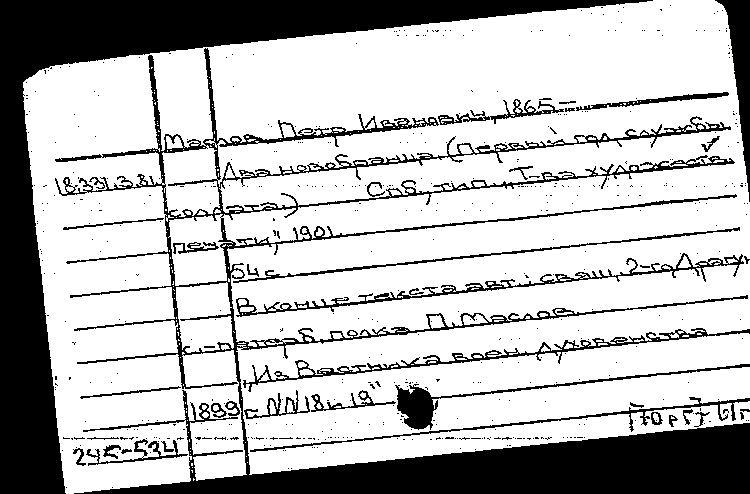 Маслов, Петр Иванович, 1865-
18.331.3.81. Два новобранца. (Первый год службы
солдата.) Спб., тип. „Т-ва художеств.
печати", 1901.
54 с.
В конце текста авт.: свящ. 2-го Драгун.
С.-Петерб. полка П. Маслов.
„Из Вестника воен. духовенства
1899 г. NN 18 и 19"
245-534